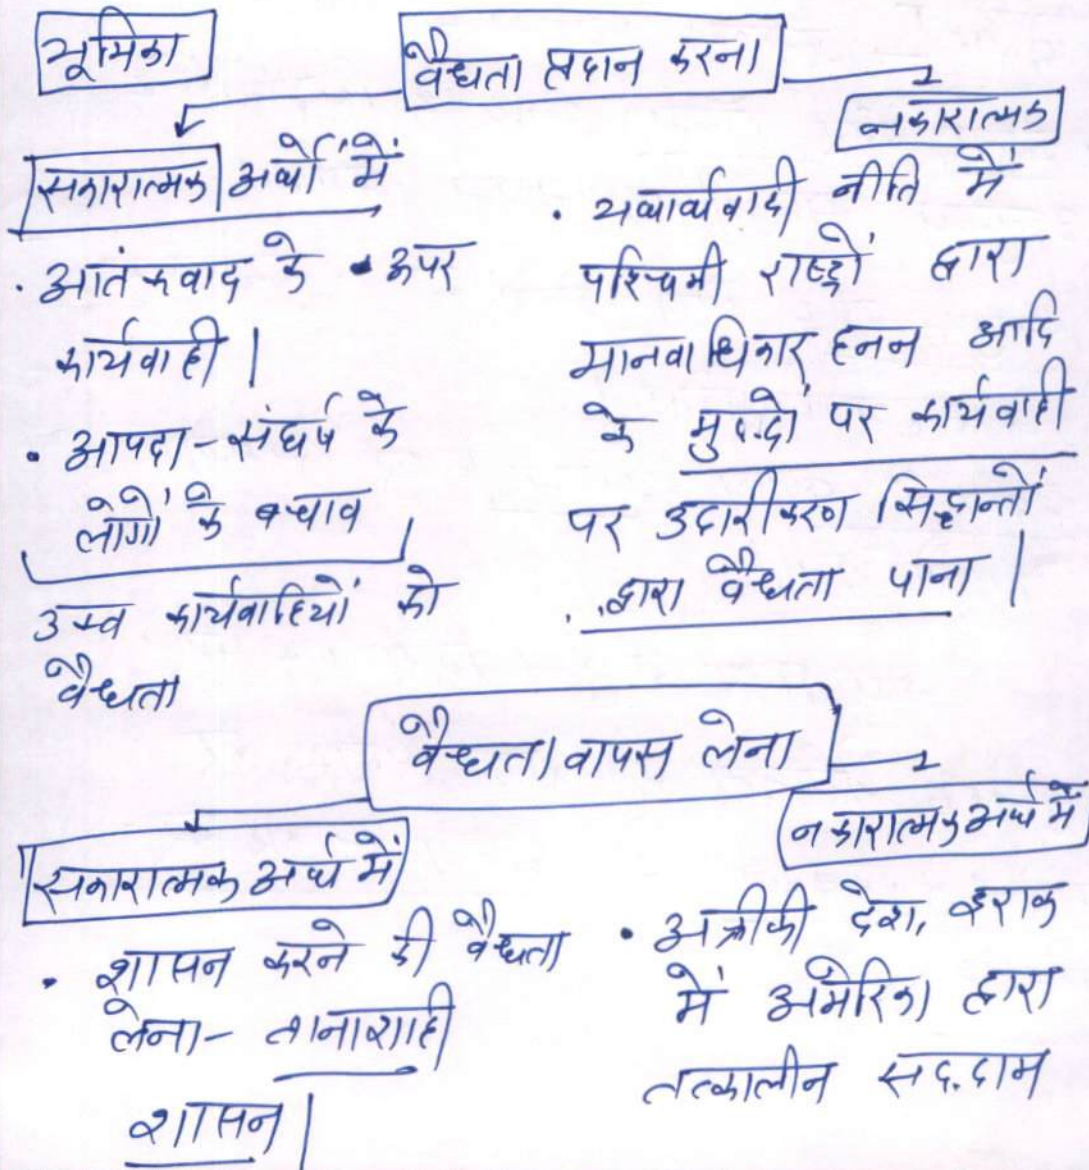 भूमिका
वैधता प्रदान करना
सकारात्मक अर्थों में
• आतंकवाद के ऊपर
कार्यवाही |
• आपदा-संघर्ष के
लोगों के बचाव
उक्त कार्यवाहियों को
वैधता
नकारात्मक
• यथार्थवादी नीति में
पश्चिमी राष्ट्रों द्वारा
मानवाधिकार हनन आदि
के मुद्दो पर कार्यवाही
पर उदारीकरण सिद्धान्तों
द्वारा वैधता पाना |
वैधता वापस लेना
सकारात्मक अर्थ में
• शासन करने की वैधता
लेना- तानाशाही
शासन |
नकारात्मक अर्थ में
• अफ्रीकी देश, इराक
में अमेरिका द्वारा
तत्कालीन सद्दाम